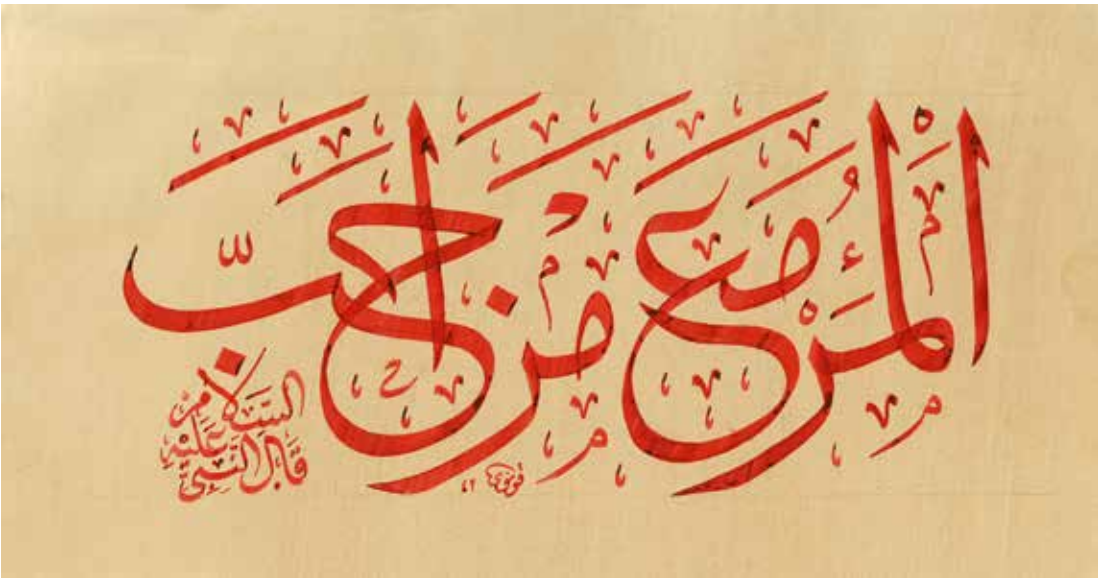 اَلْمَرْءُ مَعَ مَنْ اَحَبَّ
قَالَ النَّبِيُّ
عَلَيْهِ
السَّلَامُ